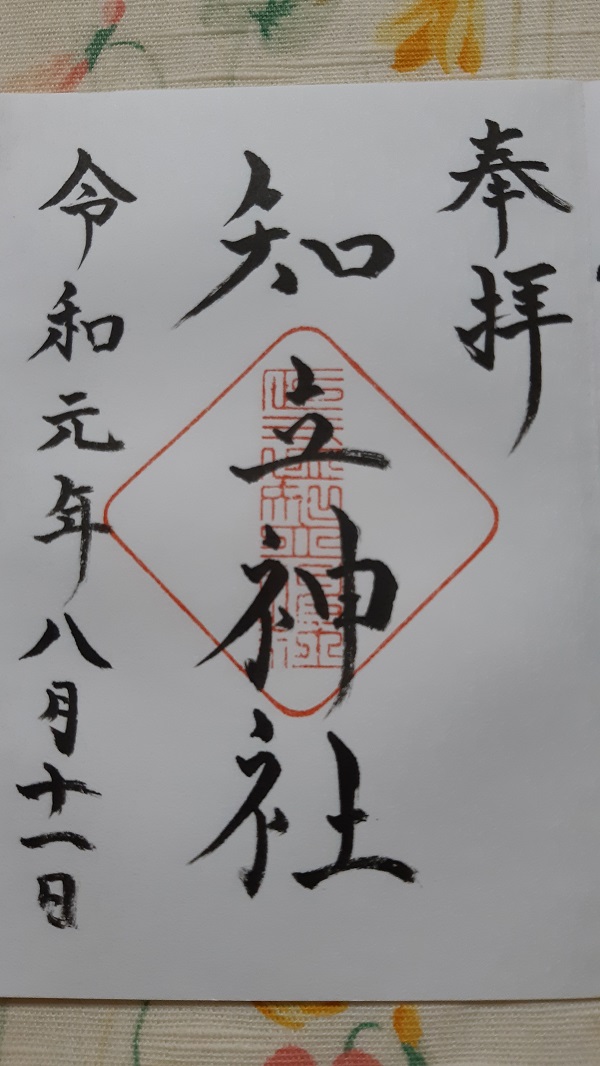 奉拝
知立神社
令和元年八月十一日